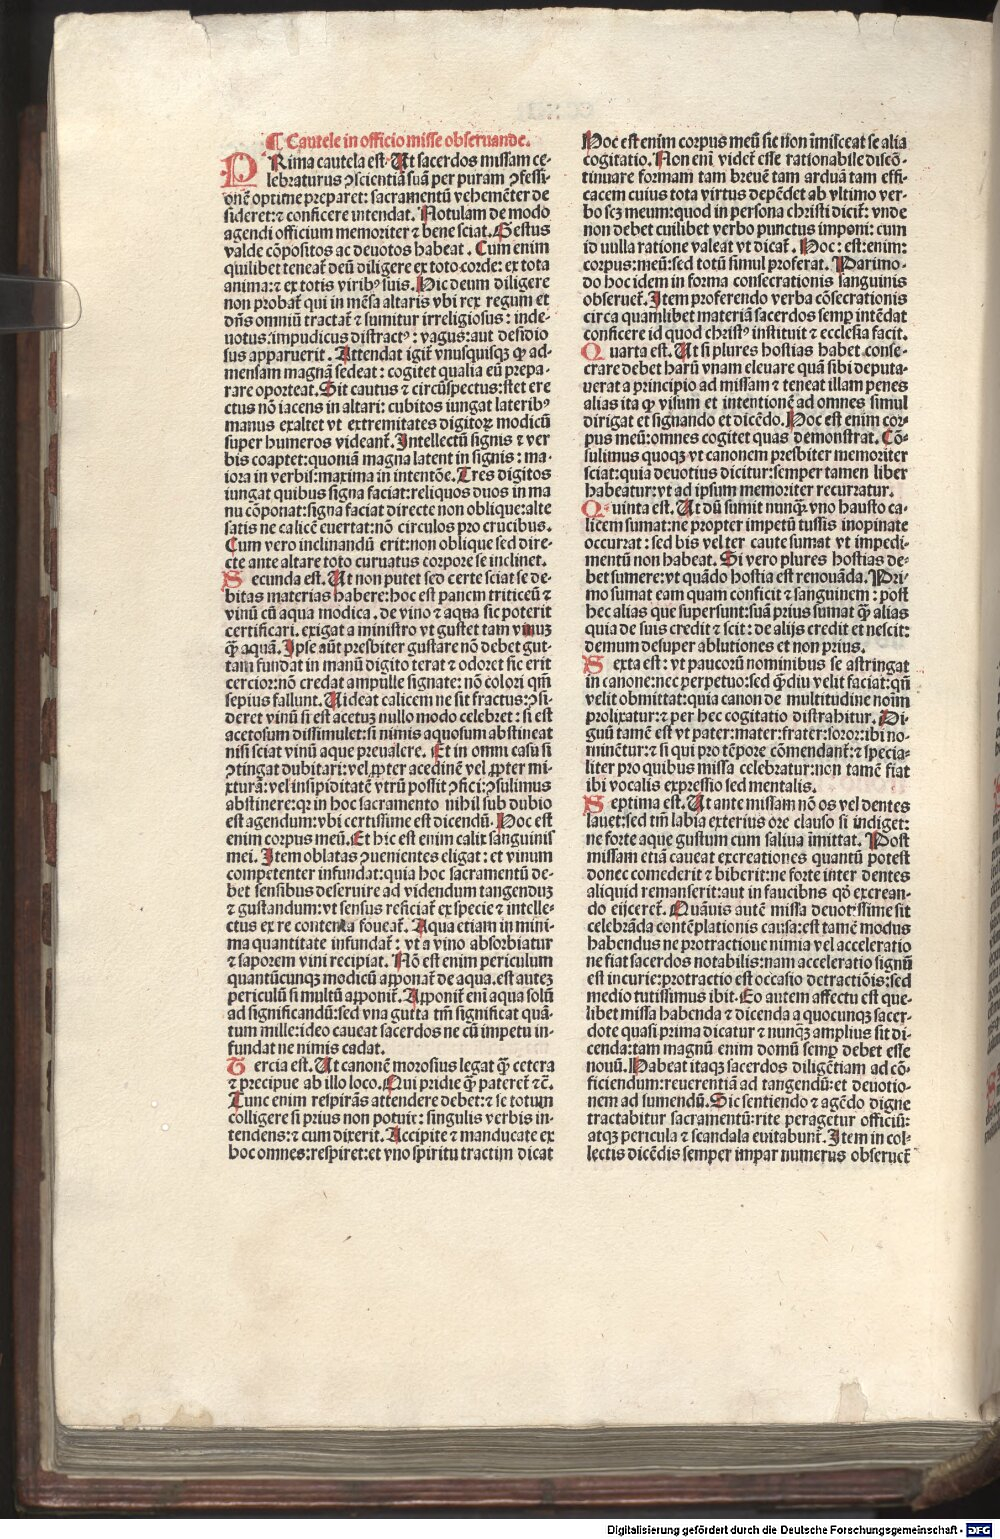 ¶ Cautele in officio misse obseruande.
PRima cautela est. Ut sacerdos missam ce-
lebraturus ꝯscientiā suā per puram ꝯfessi-
onē optime preparet: sacramentū vehemēter de
sideret: ⁊ conficere intendat. Notulam de modo
agendi officium memoriter ⁊ bene sciat. Gestus
valde cōpositos ac deuotos habeat. Cum enim
quilibet teneat̄ deū diligere ex toto corde: ex tota
anima: ⁊ ex totis viribꝰ suis. Hic deum diligere
non probat̄ qui in mēsa altaris vbi rex regum et
dn̄s omniū tractat̄ ⁊ sumitur irreligiosus: inde-
uotus: impudicus distractꝰ: vagus: aut desidio
sus apparuerit. Attendat igit̄ vnusquisqꝫ ꝙ ad-
mensam magnā sedeat: cogitet qualia eū prepa-
rare oporteat. Sit cautus ⁊ circūspectus: stet ere
ctus nō iacens in altari: cubitos iungat lateribꝰ
manus exaltet vt extremitates digitoꝝ modicū
super humeros videant̄. Intellectū signis ⁊ ver
bis coaptet: quoniā magna latent in signis: ma-
iora in verbis: maxima in intentōe. Tres digitos
iungat quibus signa faciat: reliquos duos in ma
nu cōponat: signa faciat directe non oblique: alte
satis ne calicē euertat: nō circulos pro crucibus.
Cum vero inclinandū erit: non oblique sed dire-
cte ante altare toto curuatus corpore se inclinet.
Secunda est. Ut non putet sed certe sciat se de-
bitas materias habere: hoc est panem triticeū ⁊
vinū cū aqua modica. de vino ⁊ aqua sic poterit
certificari. exigat a ministro vt gustet tam vinuꝫ
ꝙ̄ aquā. Ipse aūt presbiter gustare nō debet gut-
tam fundat in manū digito terat ⁊ odoret sic erit
cercior: nō credat ampulle signate: nō colori qm̄
sepius fallunt. Uideat calicem ne sit fractus: ꝯsi-
deret vinū si est acetuꝫ nullo modo celebret: si est
acetosum dissimulet: si nimis aquosum abstineat
nisi sciat vinū aque preualere. Et in omni casu si
ꝯtingat dubitari: vel ꝓpter acedinē vel ꝓpter mi-
xturā: vel insipiditatē vtrū possit ꝯfici: ꝯsulimus
abstinere: qꝛ in hoc sacramento nihil sub dubio
est agendum: vbi certissime est dicendū. Hoc est
enim corpus meū. Et hic est enim calix sanguinis
mei. Item oblatas ꝯuenientes eligat: et vinum
competenter infundat: quia hoc sacramentū de-
bet sensibus deseruire ad videndum tangenduꝫ
⁊ gustandum: vt sensus reficiat̄ ex specie ⁊ intelle-
ctus ex re contenta foueat̄. Aqua etiam in mini-
ma quantitate infundat̄: vt a vino absorbiatur
⁊ saporem vini recipiat. Nō est enim periculum
quantūcunqꝫ modicū apponat̄ de aqua. est auteꝫ
periculū si multū apponit̄. Apponit̄ eni aqua solū
ad significandū: sed vna gutta tm̄ significat quā-
tum mille: ideo caueat sacerdos ne cū impetu in-
fundat ne nimis cadat.
Tercia est. Ut canonē morosius legat ꝙ̄ cetera
⁊ precipue ab illo loco. Qui pridie ꝙ̄ pateret̄ ⁊c̄.
Tunc enim respirās attendere debet: ⁊ se totum
colligere si prius non potuit: singulis verbis in-
tendens: ⁊ cum dixerit. Accipite ⁊ manducate ex
hoc omnes: respiret: et vno spiritu tractim dicat
Hoc est enim corpus meū sic non īmisceat se alia
cogitatio. Non eni videt̄ esse rationabile discō-
tinuare formam tam breuē tam arduā tam effi-
cacem cuius tota virtus depēdet ab vltimo ver-
bo scꝫ meum: quod in persona christi dicit̄: vnde
non debet cuilibet verbo punctus imponi: cum
id nulla ratione valeat vt dicat̄. Hoc: est: enim:
corpus: meū: sed totū simul proferat. Pari mo-
do hoc idem in forma consecrationis sanguinis
obseruet̄. Item proferendo verba cōsecrationis
circa quamlibet materiā sacerdos semp̄ intēdat
conficere id quod christꝰ instituit ⁊ ecclesia facit.
Quarta est. Ut si plures hostias habet conse-
crare debet harū vnam eleuare quā sibi deputa-
uerat a principio ad missam ⁊ teneat illam penes
alias ita ꝙ visum et intentionē ad omnes simul
dirigat et signando et dicēdo. Hoc est enim cor-
pus meū: omnes cogitet quas demonstrat. Cō-
sulimus quoqꝫ vt canonem presbiter memoriter
sciat: quia deuotius dicitur: semper tamen liber
habeatur: vt ad ipsum memoriter recurratur.
Quinta est. Ut dū sumit nunqꝫ vno hausto ca-
licem sumat: ne propter impetū tussis inopinate
occurrat: sed bis vel ter caute sumat vt impedi-
mentū non habeat. Si vero plures hostias de-
bet sumere: vt quādo hostia est renouāda. Pri-
mo sumat eam quam conficit ⁊ sanguinem: post
hec alias que supersunt: suā prius sumat ꝙ̄ alias
quia de suis credit ⁊ scit: de alijs credit et nescit:
demum desuper ablutiones et non prius.
Sexta est: vt paucorū nominibus se astringat
in canone: nec perpetuo: sed ꝙ̄diu velit faciat: qn̄
velit obmittat: quia canon de multitudine noīm
prolixatur: ⁊ per hec cogitatio distrahitur. Di-
guū tamē est vt pater: mater: frater: soror: ibi no-
minētur: ⁊ si qui pro tēpore cōmendant̄: ⁊ specia-
liter pro quibus missa celebratur: non tamē fiat
ibi vocalis expressio sed mentalis.
Septima est. Ut ante missam nō os vel dentes
lauet: sed tm̄ labia exterius ore clauso si indiget:
ne forte aque gustum cum saliua īmittat. Post
missam etiā caueat excreationes quantū potest
donec comederit ⁊ biberit: ne forte inter dentes
aliquid remanserit: aut in faucibus qd̄ excrean-
do eijceret̄. Quāuis autē missa deuotissime sit
celebrāda contēplationis causa: est tamē modus
habendus ne protractioue nimia vel acceleratio
ne fiat sacerdos notabilis: nam acceleratio signū
est incurie: protractio est occasio detractiōis: sed
medio tutissimus ibit. Eo autem affectu est que-
libet missa habenda ⁊ dicenda a quocunqꝫ sacer-
dote quasi prima dicatur ⁊ nunqꝫ amplius sit di-
cenda: tam magnū enim donū semp̄ debet esse
nouū. Habeat itaqꝫ sacerdos diligētiam ad cō-
ficiendum: reuerentiā ad tangendū: et deuotio-
nem ad sumendū. Sic sentiendo ⁊ agēdo digne
tractabitur sacramentū: rite peragetur officiū:
atqꝫ pericula ⁊ scandala euitabunt̄. Item in col-
lectis dicēdis semper impar numerus obseruet̄
Digitalisierung gefördert durch die Deutsche Forschungsgemeinschaft - DFG